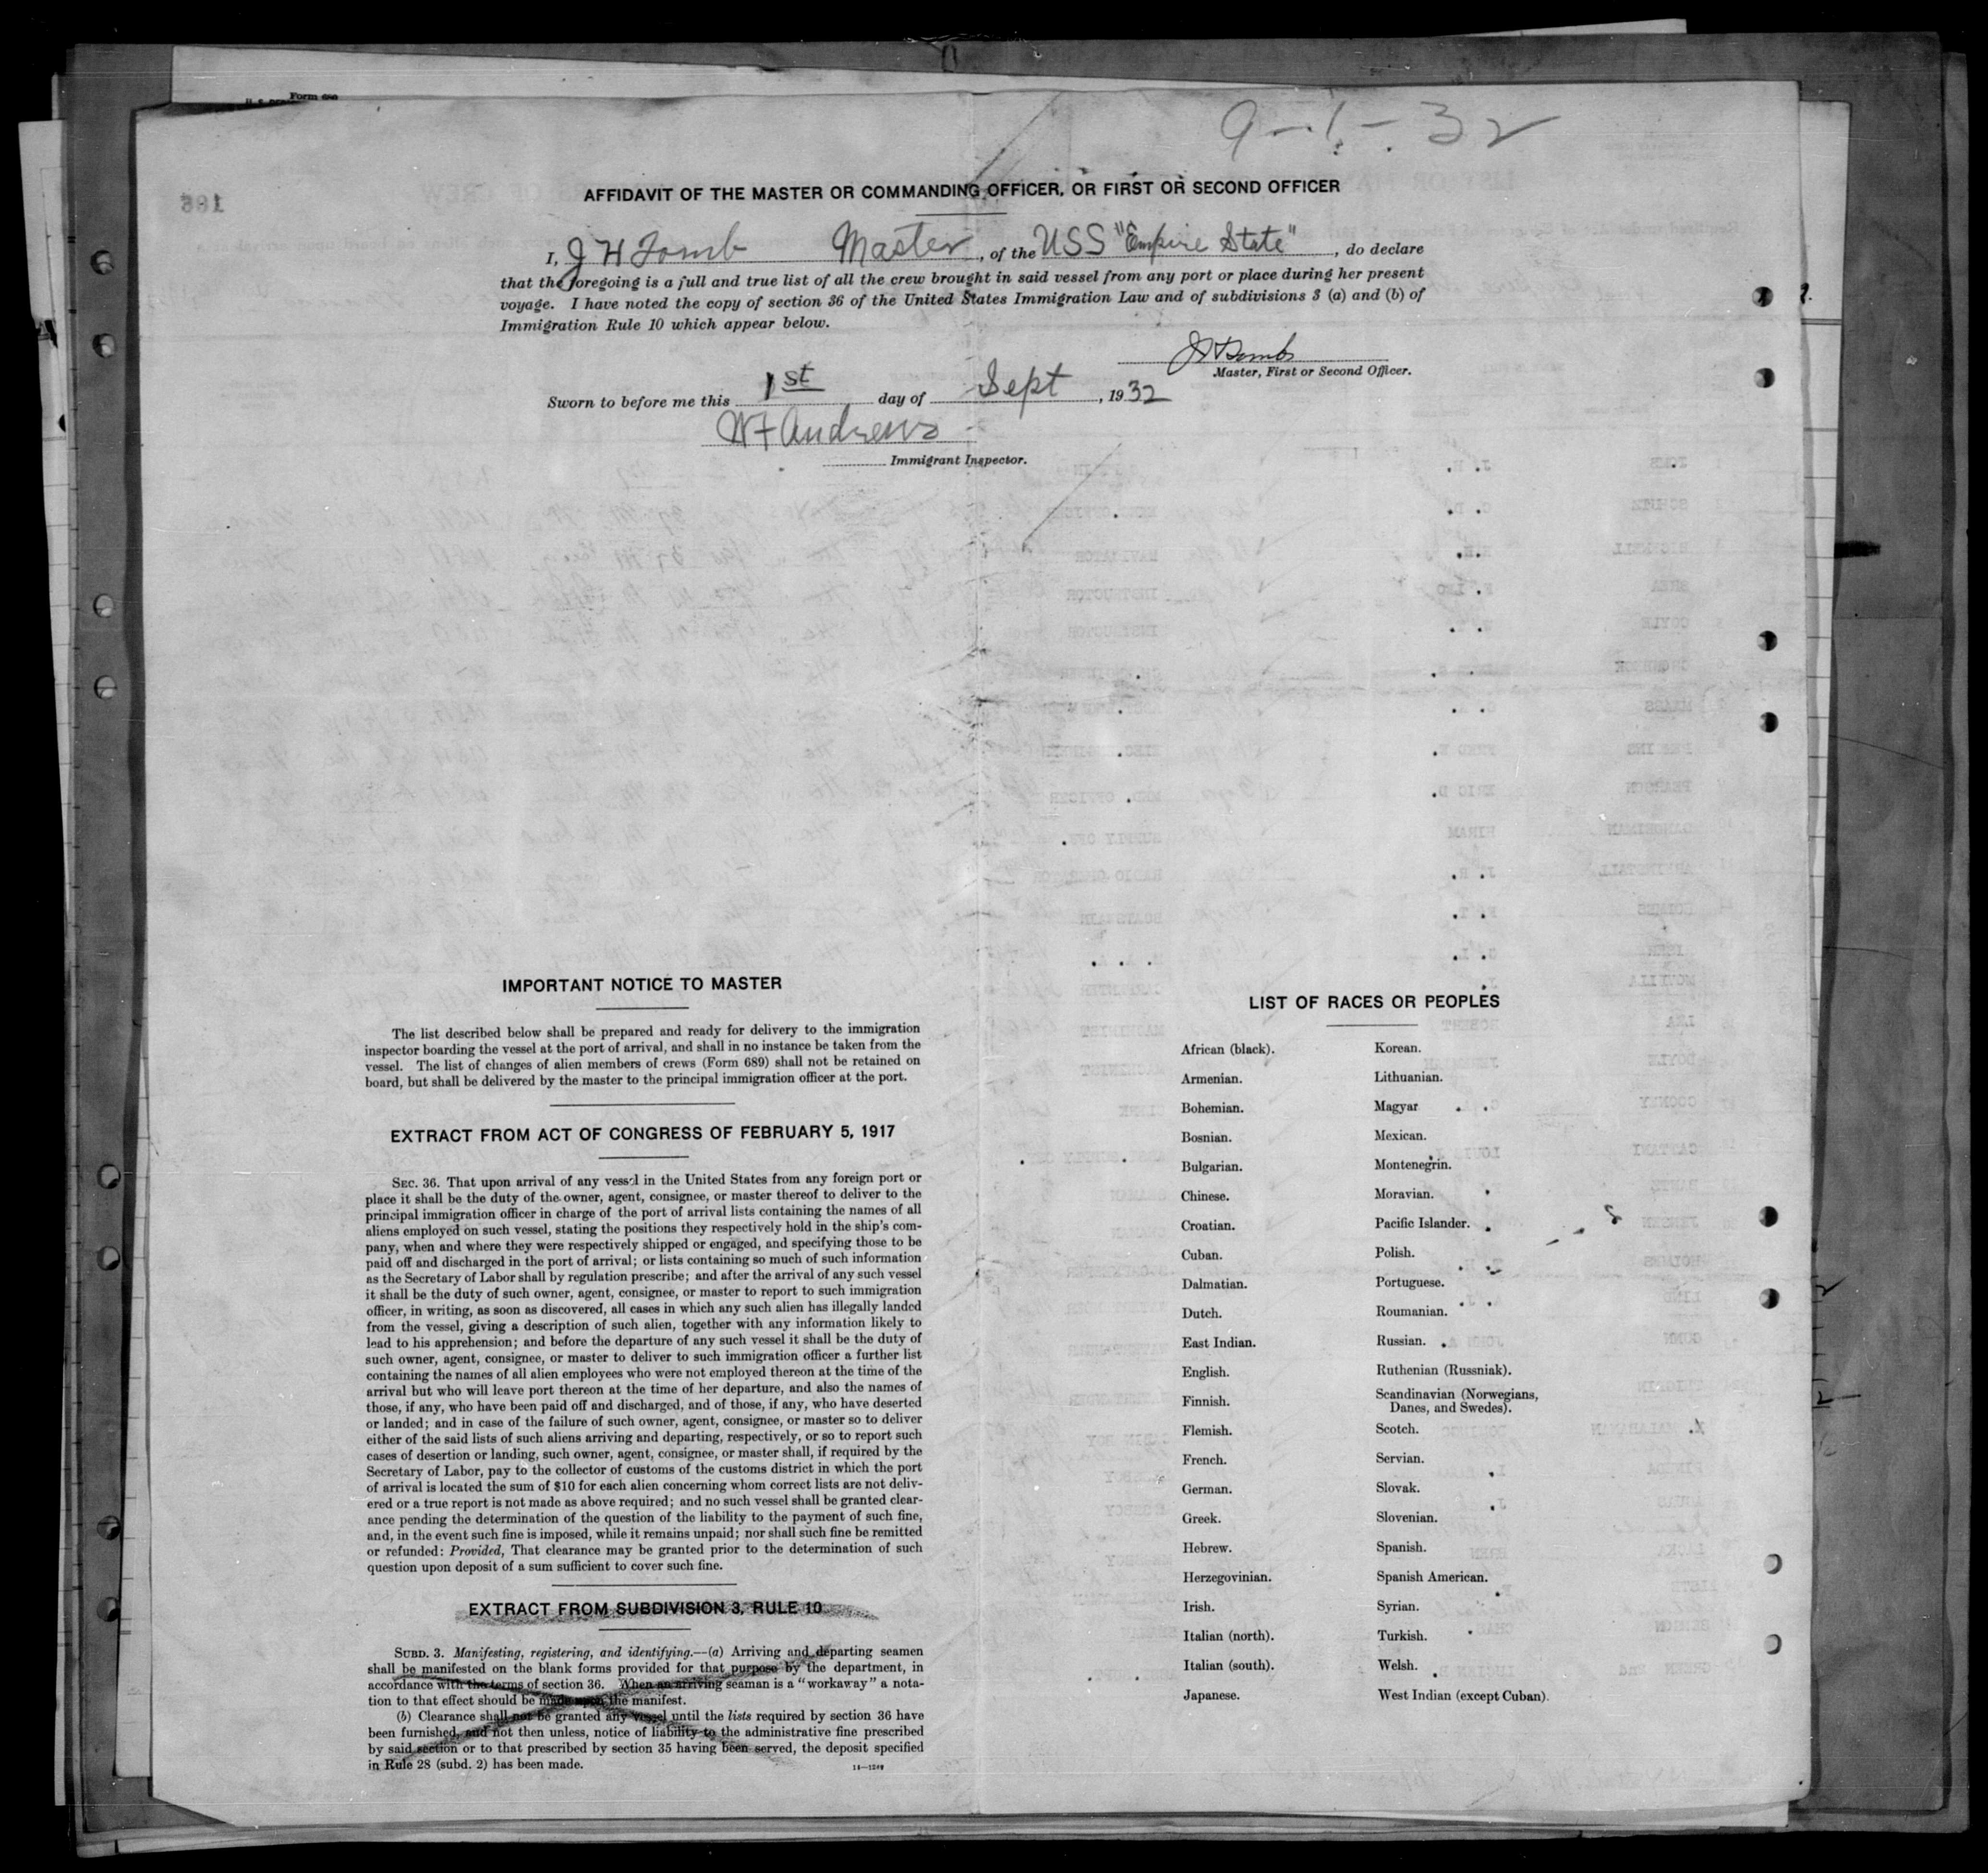 Form 689
9-1-32
AFFIDAVIT OF THE MASTER OR COMMANDING OFFICER, OR FIRST OR SECOND OFFICER
I, J H Tomb Master, of the USS "Empire State", do declare
that the foregoing is a full and true list of all the crew brought in said vessel from any port or place during her present
voyage. I have noted the copy of section 36 of the United States Immigration Law and of subdivisions 3 (a) and (b) of
Immigration Rule 10 which appear below.
J H Tomb
Master, First or Second Officer.
Sworn to before me this 1st day of Sept, 1932
W F Andrews
Immigrant Inspector.
IMPORTANT NOTICE TO MASTER
The list described below shall be prepared and ready for delivery to the immigration
inspector boarding the vessel at the port of arrival, and shall in no instance be taken from the
vessel. The list of changes of alien members of crews (Form 689) shall not be retained on
board, but shall be delivered by the master to the principal immigration officer at the port.
EXTRACT FROM ACT OF CONGRESS OF FEBRUARY 5, 1917
SEC. 36. That upon arrival of any vessel in the United States from any foreign port or
place it shall be the duty of the owner, agent, consignee, or master thereof to deliver to the
principal immigration officer in charge of the port of arrival lists containing the names of all
aliens employed on such vessel, stating the positions they respectively hold in the ship's com-
pany, when and where they were respectively shipped or engaged, and specifying those to be
paid off and discharged in the port of arrival; or lists containing so much of such information
as the Secretary of Labor shall by regulation prescribe; and after the arrival of any such vessel
it shall be the duty of such owner, agent, consignee, or master to report to such immigration
officer, in writing, as soon as discovered, all cases in which any such alien has illegally landed
from the vessel, giving a description of such alien, together with any information likely to
lead to his apprehension; and before the departure of any such vessel it shall be the duty of
such owner, agent, consignee, or master to deliver to such immigration officer a further list
containing the names of all alien employees who were not employed thereon at the time of the
arrival but who will leave port thereon at the time of her departure, and also the names of
those, if any, who have been paid off and discharged, and of those, if any, who have deserted
or landed; and in case of the failure of such owner, agent, consignee, or master so to deliver
either of the said lists of such aliens arriving and departing, respectively, or so to report such
cases of desertion or landing, such owner, agent, consignee, or master shall, if required by the
Secretary of Labor, pay to the collector of customs of the customs district in which the port
of arrival is located the sum of $10 for each alien concerning whom correct lists are not deliv-
ered or a true report is not made as above required; and no such vessel shall be granted clear-
ance pending the determination of the question of the liability to the payment of such fine,
and, in the event such fine is imposed, while it remains unpaid; nor shall such fine be remitted
or refunded: Provided, That clearance may be granted prior to the determination of such
question upon deposit of a sum sufficient to cover such fine.
EXTRACT FROM SUBDIVISION 3, RULE 10
SUBD. 3. Manifesting, registering, and identifying.—(a) Arriving and departing seamen
shall be manifested on the blank forms provided for that purpose by the department, in
accordance with the terms of section 36. When an arriving seaman is a "workaway" a nota-
tion to that effect should be made upon the manifest.
(b) Clearance shall not be granted any vessel until the lists required by section 36 have
been furnished, and not then unless, notice of liability to the administrative fine prescribed
by said section or to that prescribed by section 35 having been served, the deposit specified
in Rule 28 (subd. 2) has been made.
LIST OF RACES OR PEOPLES
African (black).
Armenian.
Bohemian.
Bosnian.
Bulgarian.
Chinese.
Croatian.
Cuban.
Dalmatian.
Dutch.
East Indian.
English.
Finnish.
Flemish.
French.
German.
Greek.
Hebrew.
Herzegovinian.
Irish.
Italian (north).
Italian (south).
Japanese.
Korean.
Lithuanian.
Magyar
Mexican.
Montenegrin.
Moravian.
Pacific Islander.
Polish.
Portuguese.
Roumanian.
Russian.
Ruthenian (Russniak).
Scandinavian (Norwegians,
Danes, and Swedes).
Scotch.
Servian.
Slovak.
Slovenian.
Spanish.
Spanish American.
Syrian.
Turkish.
Welsh.
West Indian (except Cuban).